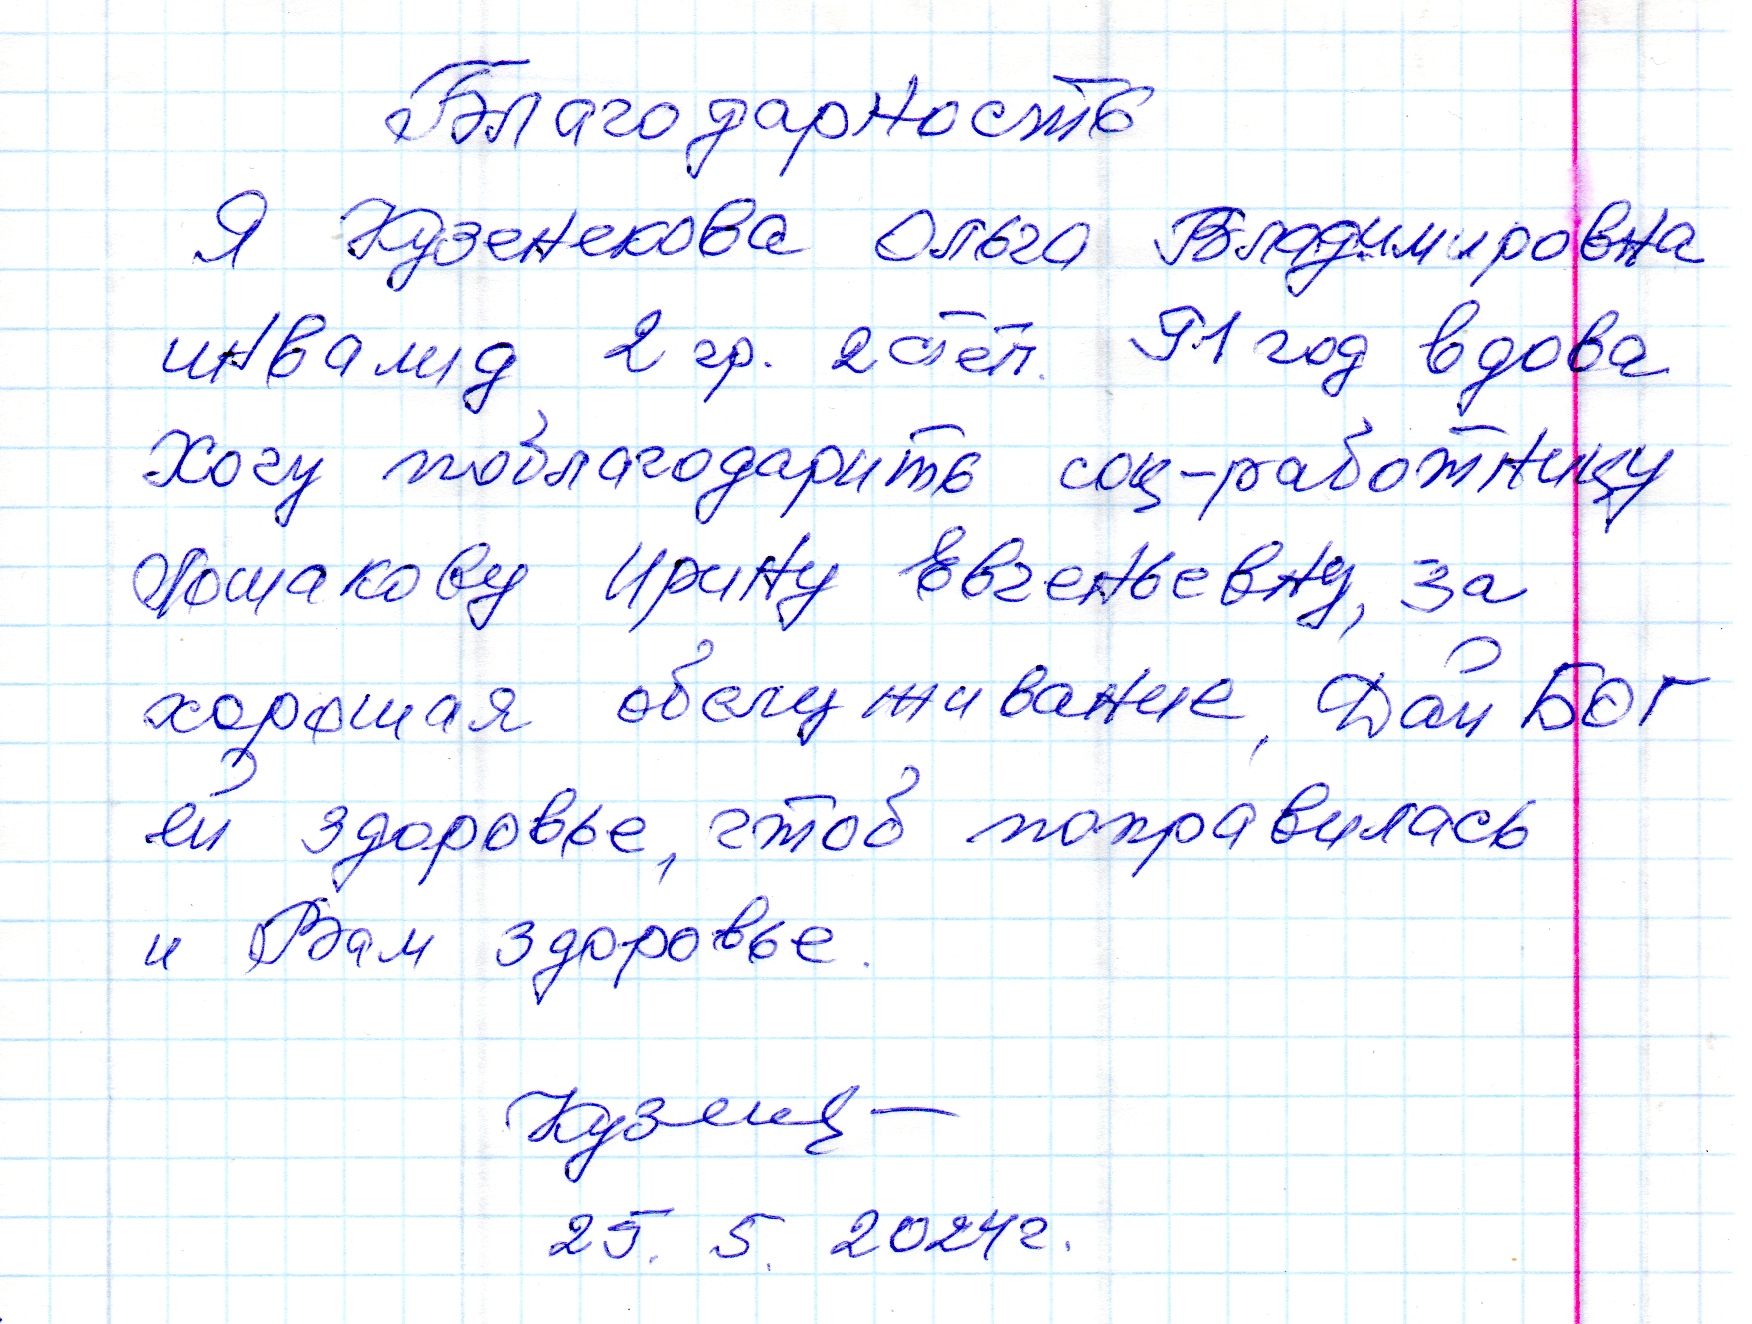 Благодарность
Я Кузенекова Ольга Владимировна
инвалид 2 гр. 2 степ. 91 год вдова
Хочу поблагодарить соц-работницу
Ирину Евгеньевну, за
хорошая обслуживание, Дай БОГ
ей здоровье, чтоб поправилась
и Вам здоровье.
25. 5. 2024г.